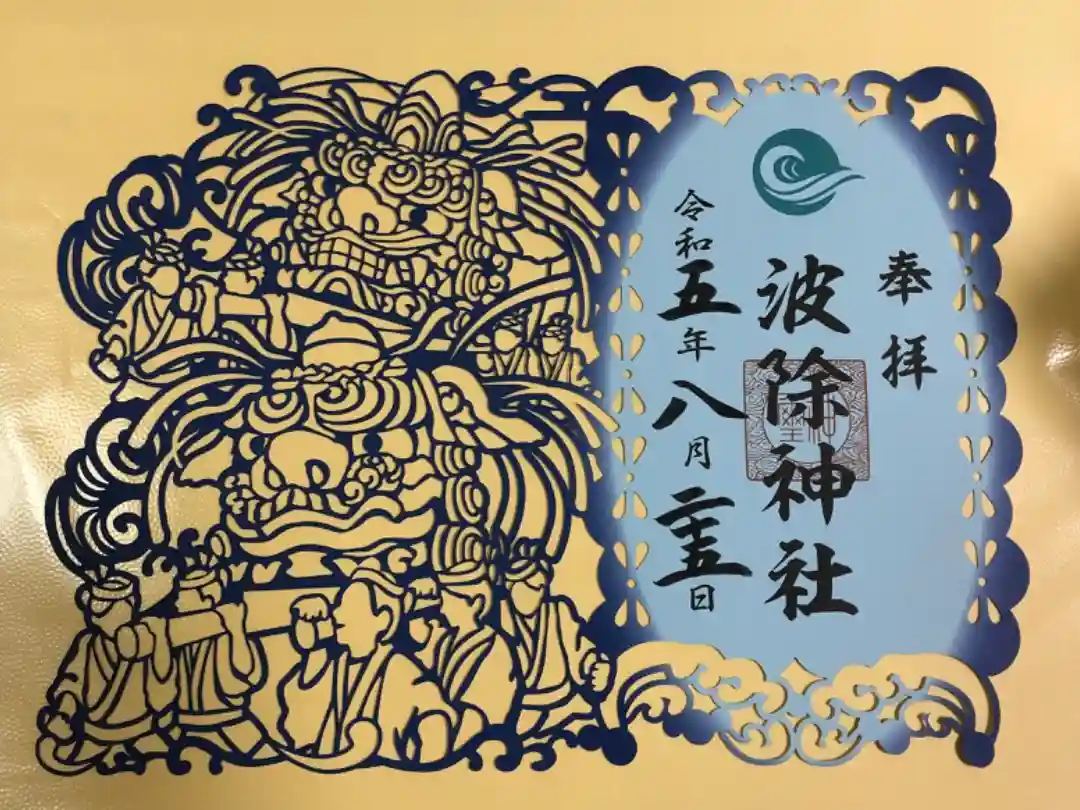 奉拝
波除神社
令和五年八月二十五日